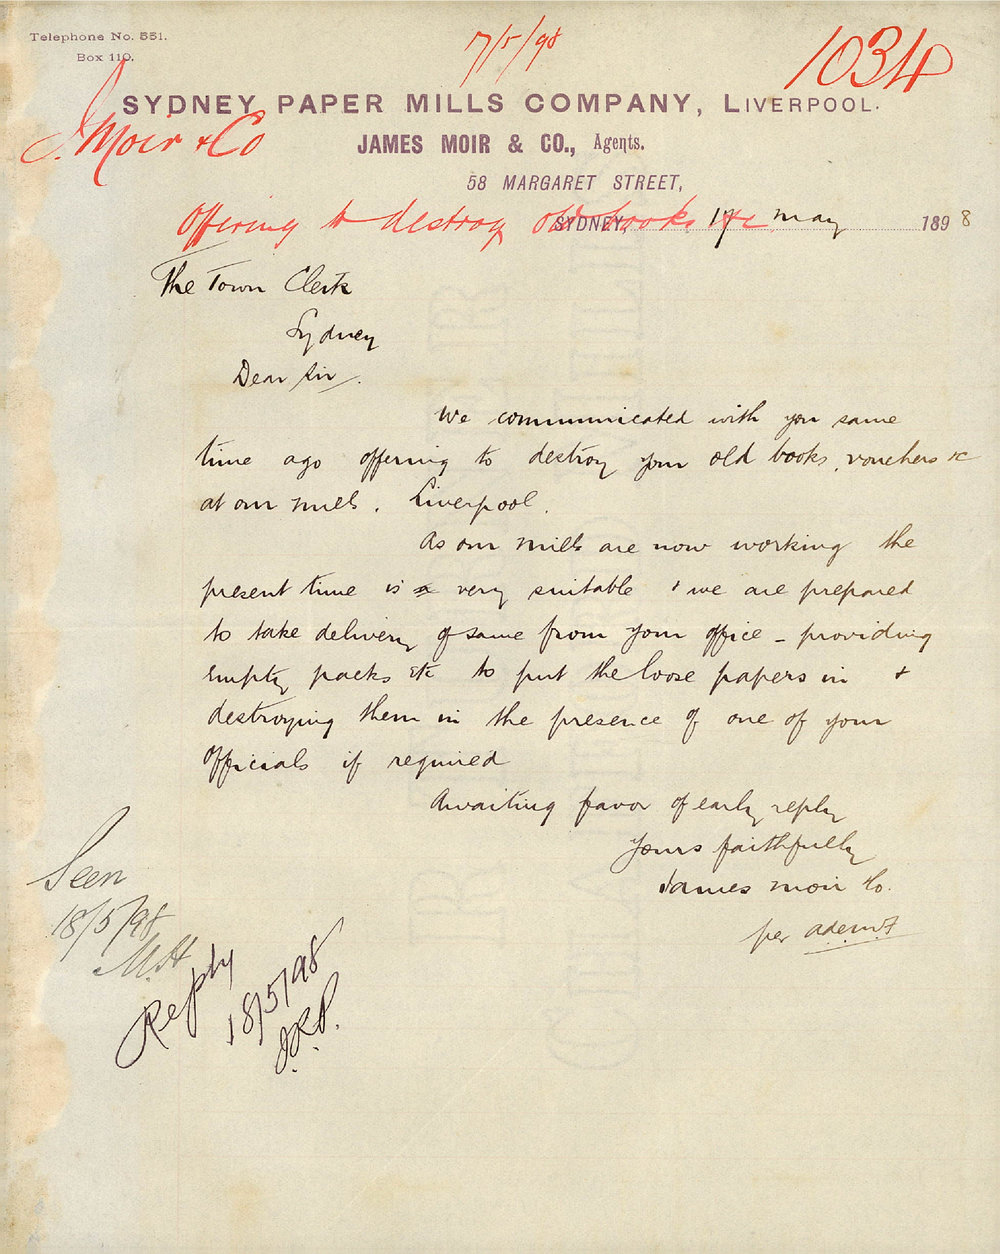 Telephone No. 551.
Box 110.
17/5/98
1034
SYDNEY PAPER MILLS COMPANY, LIVERPOOL.
J. Moir & Co
JAMES MOIR & CO., Agents.
58 MARGARET STREET,
Offering to destroy old books &c
SYDNEY, 17 May 1898
The Town Clerk
Sydney
Dear Sir,
We communicated with you some
time ago offering to destroy your old books, vouchers &c
at our mills, Liverpool.
As our mills are now working the
present time is a very suitable & we are prepared
to take delivery of same from your office - providing
empty packs etc to put the loose papers in &
destroying them in the presence of one of your
officials if required
Awaiting favor of early reply
Yours faithfully
James Moir Co.
per
Seen
18/5/98
M.H
Reply
18/5/98
J.R.P.